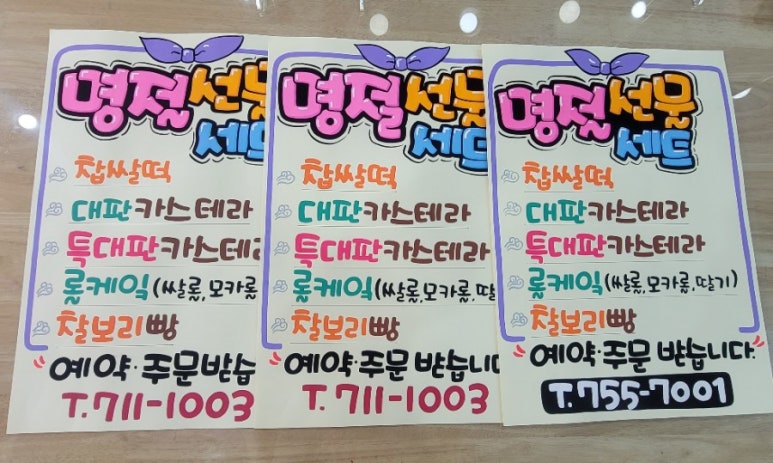 명절선물
세트
찹쌀떡
대판카스테라
특대판카스테라
롤케잌(쌀롤,모카롤
찰보리빵
예약·주문받습
T.711-1003
명절선물
세트
찹쌀떡
대판카스테라
특대판카스테라
롤케잌(쌀롤,모카롤,딸
찰보리빵
예약·주문 받습니
T. 711-1003
명절선물
세트
찹쌀떡
대판카스테라
특대판카스테라
롤케잌(쌀롤,모카롤,딸기)
찰보리빵
예약·주문 받습니다.
T.755-7001